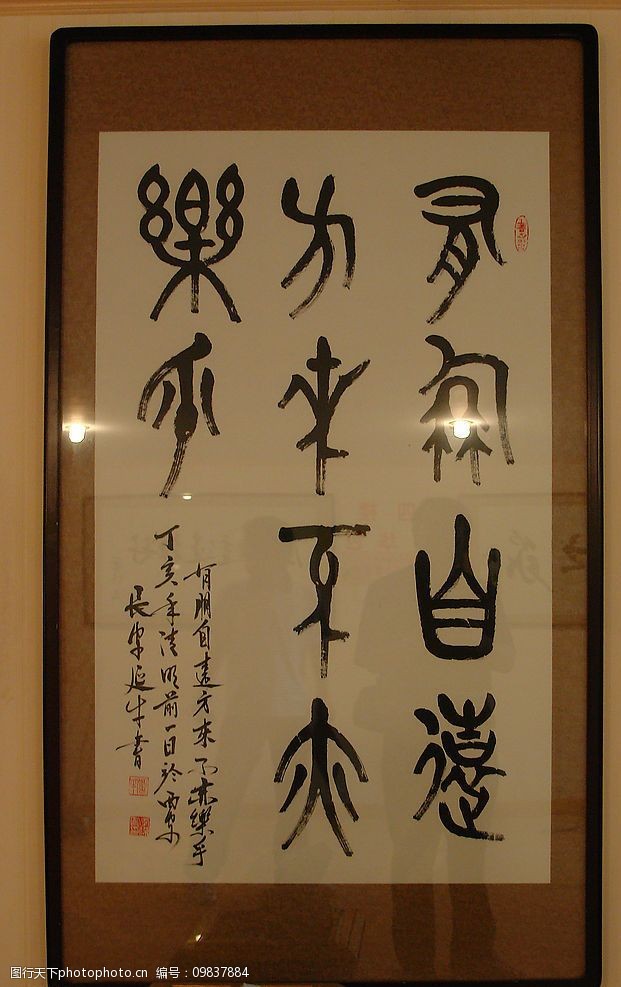 有朋自遠
方來不亦
樂乎
有朋自遠方來不亦樂乎
丁亥年清明前一日於西
延生書
图行天下photophoto.cn 编号：09837884